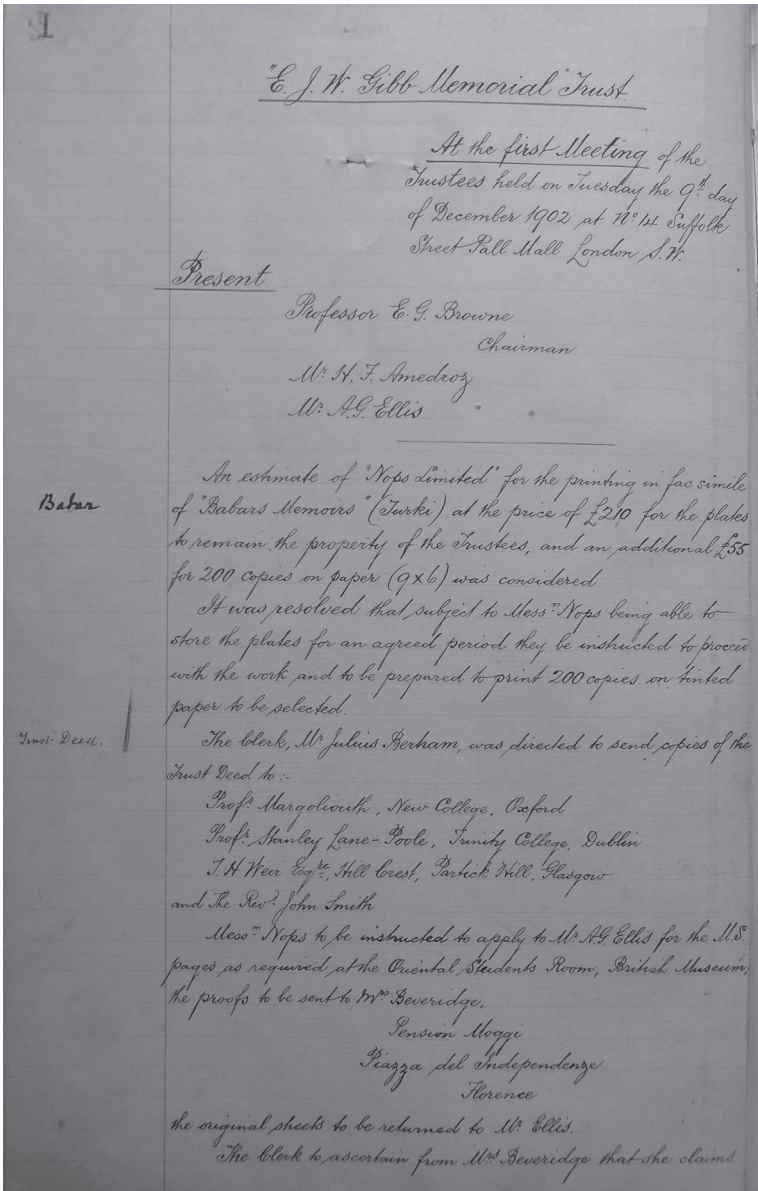 1
"E. J. W. Gibb Memorial" Trust
At the first Meeting of the
Trustees held on Tuesday the 9th day
of December 1902 at No. 14 Suffolk
Street Pall Mall London S.W.
Present
Professor E. G. Browne
Chairman
Mr H. F. Amedroz
Mr A.G. Ellis
An estimate of "Nops Limited" for the printing in fac simile
Babar
of "Babars Memoirs" (Turki) at the price of £210 for the plates
to remain the property of the Trustees, and an additional £55
for 200 copies on paper (9x6) was considered
It was resolved that subject to Messrs Nops being able to
store the plates for an agreed period they be instructed to proceed
with the work and to be prepared to print 200 copies on tinted
paper to be selected.
Trust Deed.
The Clerk, Mr Julius Bertram, was directed to send copies of the
Trust Deed to :-
Profr. Margoliouth, New College, Oxford
Profr. Stanley Lane-Poole, Trinity College, Dublin
T. H Weir Esqre, Hill Crest, Partick Hill, Glasgow
and The Revd. John Smith
Messrs Nops to be instructed to apply to Mr A.G. Ellis for the M.S.
pages as required at the Oriental Students Room, British Museum;
the proofs to be sent to Mrs Beveridge,
Pension Moggi
Piazza del Independenze
Florence
the original sheets to be returned to Mr Ellis.
The Clerk to ascertain from Mrs Beveridge that she claims